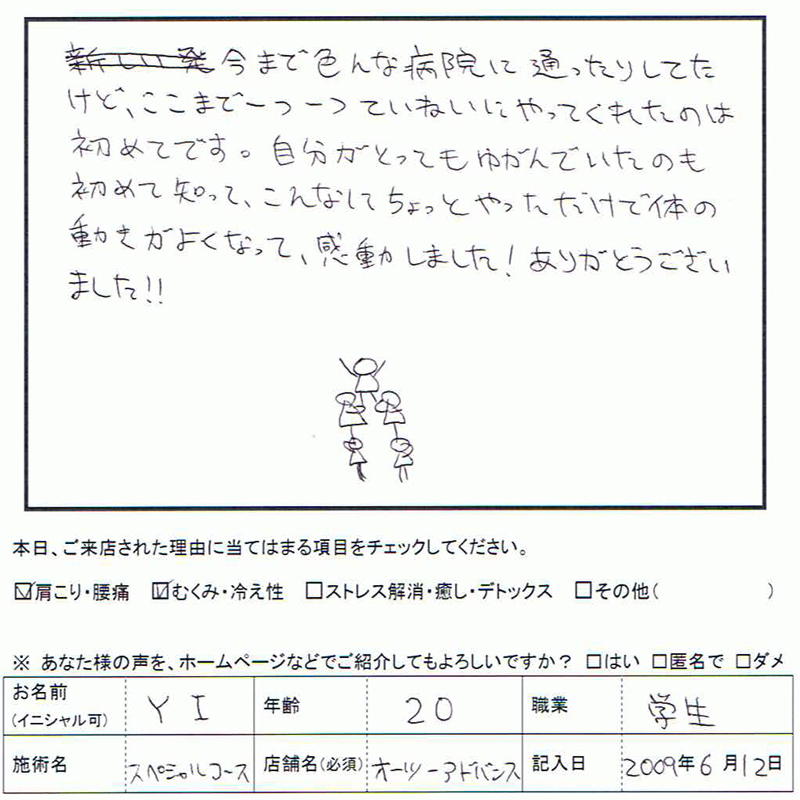 新しい発 今まで色んな病院に通ったりしてた
けど、ここまで一つ一つていねいにやってくれたのは
初めてです。自分がとってもゆがんでいたのも
初めて知って、こんなしてちょっとやっただけで体の
動きがよくなって、感動しました!ありがとうござい
ました!!
本日、ご来店された理由に当てはまる項目をチェックしてください。
☑肩こり・腰痛 ☑むくみ・冷え性 □ストレス解消・癒し・デトックス □その他( )
※ あなた様の声を、ホームページなどでご紹介してもよろしいですか? □はい □匿名で □ダメ
お名前 (イニシャル可) Y I 年齢 20 職業 学生
施術名 スペシャルコース 店舗名(必須) オーツーアドバンス 記入日 2009年6月12日